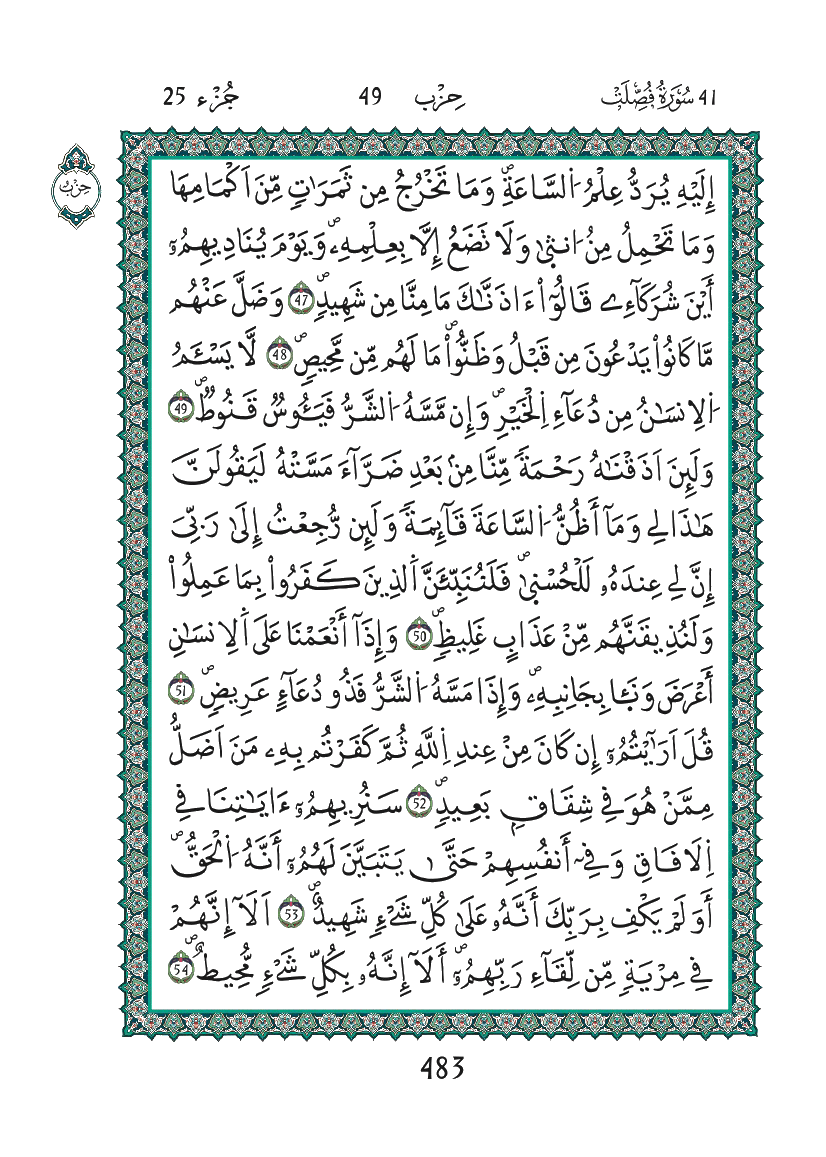 41 سُورَةُ فُصِّلَتْ حِزْب 49 جُزْء 25
حِزْب
إِلَيْهِ يُرَدُّ عِلْمُ اُ۬لسَّاعَةِۖ وَمَا تَخْرُجُ مِن ثَمَرَٰتٖ مِّنَ اَكْمَامِهَا
وَمَا تَحْمِلُ مِنُ ا۟نث۪يٰ وَلَا تَضَعُ إِلَّا بِعِلْمِهِۦۖ وَيَوْمَ يُنَادِيهِمُۥٓ
أَيْنَ شُرَكَآءِے قَالُوٓاْ ءَاذَنَّٰكَ مَا مِنَّا مِن شَهِيدٖۖ 47 وَضَلَّ عَنْهُم
مَّا كَانُواْ يَدْعُونَ مِن قَبْلُ وَظَنُّواْۖ مَا لَهُم مِّن مَّحِيصٖۖ 48 لَّا يَسْـَٔمُ
اُ۬لِانسَٰنُ مِن دُعَآءِ اِ۬لْخَيْرِۖ وَإِن مَّسَّهُ اُ۬لشَّرُّ فَيَـُٔوسٞ قَنُوطٞۖ 49
وَلَئِنَ اَذَقْنَٰهُ رَحْمَةٗ مِّنَّا مِنۢ بَعْدِ ضَرَّآءَ مَسَّتْهُ لَيَقُولَنَّ
هَٰذَا لِے وَمَآ أَظُنُّ اُ۬لسَّاعَةَ قَآئِمَةٗ وَلَئِن رُّجِعْتُ إِلَىٰ رَبِّيَ
إِنَّ لِے عِندَهُۥ لَلْحُسْن۪يٰۖ فَلَنُنَبِّئَنَّ اَ۬لذِينَ كَفَرُواْ بِمَا عَمِلُواْ
وَلَنُذِيقَنَّهُم مِّنْ عَذَابٍ غَلِيظٖۖ 50 وَإِذَآ أَنْعَمْنَا عَلَى اَ۬لِانسَٰنِ
أَعْرَضَ وَنَـَٔا بِجَانِبِهِۦۖ وَإِذَا مَسَّهُ اُ۬لشَّرُّ فَذُو دُعَآءٍ عَرِيضٖۖ 51
قُلَ اَرَٰٓيْتُمُۥٓ إِن كَانَ مِنْ عِندِ اِ۬للَّهِ ثُمَّ كَفَرْتُم بِهِۦ مَنَ اَضَلُّ
مِمَّنْ هُوَ فِے شِقَاقِۢ بَعِيدٖۖ 52 سَنُرِيهِمُۥٓ ءَايَٰتِنَا فِے
اِ۬لَافَاقِ وَفِےٓ أَنفُسِهِمْ حَتَّىٰ يَتَبَيَّنَ لَهُمُۥٓ أَنَّهُ اُ۬لْحَقُّۖ
أَوَلَمْ يَكْفِ بِرَبِّكَ أَنَّهُۥ عَلَىٰ كُلِّ شَےْءٖ شَهِيدٌۖ 53 اَلَآ إِنَّهُمْ
فِے مِرْيَةٖ مِّن لِّقَآءِ رَبِّهِمُۥٓۖ أَلَآ إِنَّهُۥ بِكُلِّ شَےْءٖ مُّحِيطٌۖ 54
483